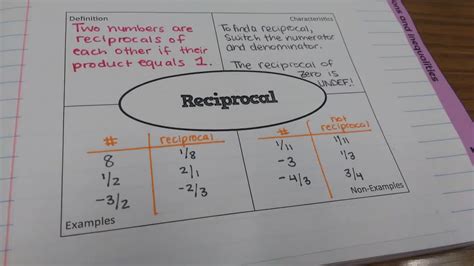 Definition
Two numbers are
reciprocals of
each other if their
product equals 1.
Characteristics
To find a reciprocal,
switch the numerator
and denominator.
The reciprocal of
zero is
UNDEF!
Reciprocal
# reciprocal
8 1/8
1/2 2/1
-3/2 -2/3
Examples
# not reciprocal
1/11 1/11
-3 1/3
-4/3 3/4
Non-Examples
ons and Inequalities